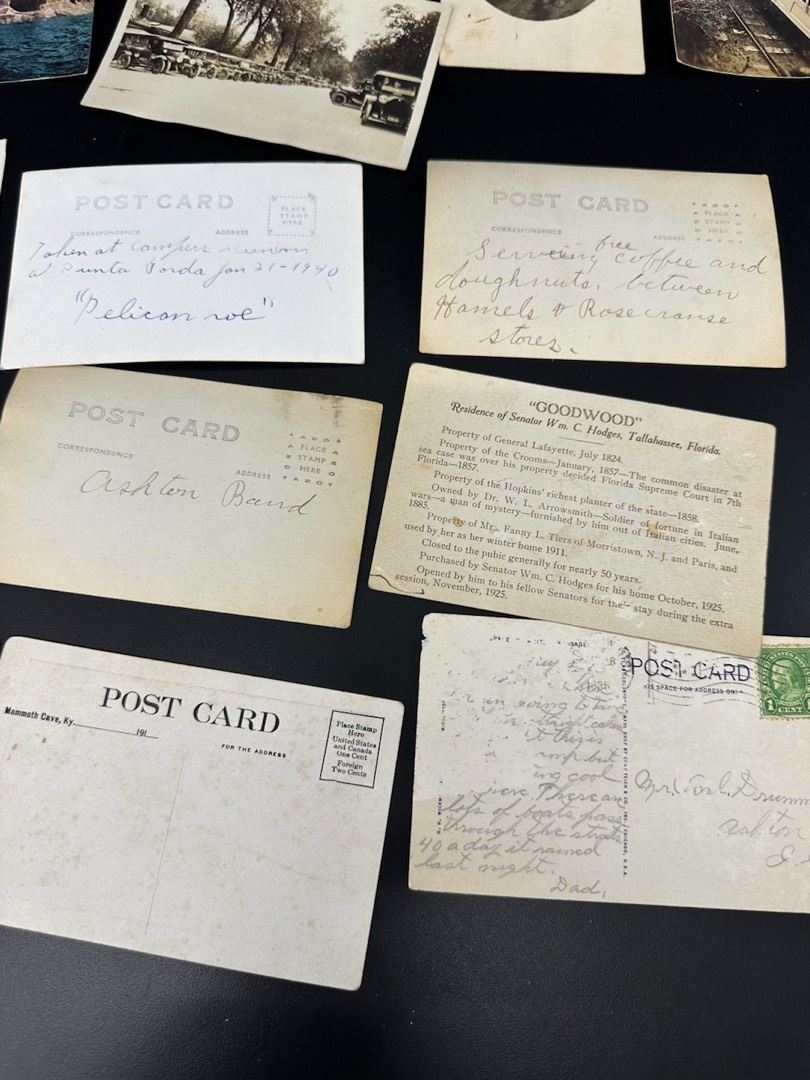 POST CARD
PLACE
STAMP
HERE
CORRESPONDENCE
ADDRESS
Taken at Campers reunion
at Punta Gorda Jan 21-1940
"Pelican roe"
POST CARD
PLACE
STAMP
HERE
CORRESPONDENCE
ADDRESS
free
Serving coffee and
doughnuts, between
Hamels & Rosecranse
stores.
POST CARD
PLACE
STAMP
HERE
CORRESPONDENCE
ADDRESS
Ashton Band
"GOODWOOD"
Residence of Senator Wm. C. Hodges, Tallahassee, Florida.
Property of General Lafayette, July 1824.
Property of the Crooms—January, 1857—The common disaster at
sea case was over his property decided Florida Supreme Court in 7th
Florida—1857.
Property of the Hopkins' richest planter of the state—1858.
Owned by Dr. W. L. Arrowsmith—Soldier of fortune in Italian
wars—a man of mystery—furnished by him out of Italian cities. June,
1885.
Property of Mrs. Fanny L. Tiers of Morristown, N. J. and Paris, and
used by her as her winter home 1911.
Closed to the pubic generally for nearly 50 years.
Purchased by Senator Wm. C. Hodges for his home October, 1925.
Opened by him to his fellow Senators for their stay during the extra
session, November, 1925.
POST CARD
Mammoth Cave, Ky. 191
FOR THE ADDRESS
Place Stamp
Here
United States
and Canada
One Cent
Foreign
Two Cents
POST CARD
THIS SPACE FOR ADDRESS ONLY
1935
1 CENT 
going to
straight
it this is
but
cool
here. There are
lots of boats pass
through the straits
40 a day it rained
last night.
Dad,
CO., INC., CHICAGO, U.S.A.
Mr.
Ashton